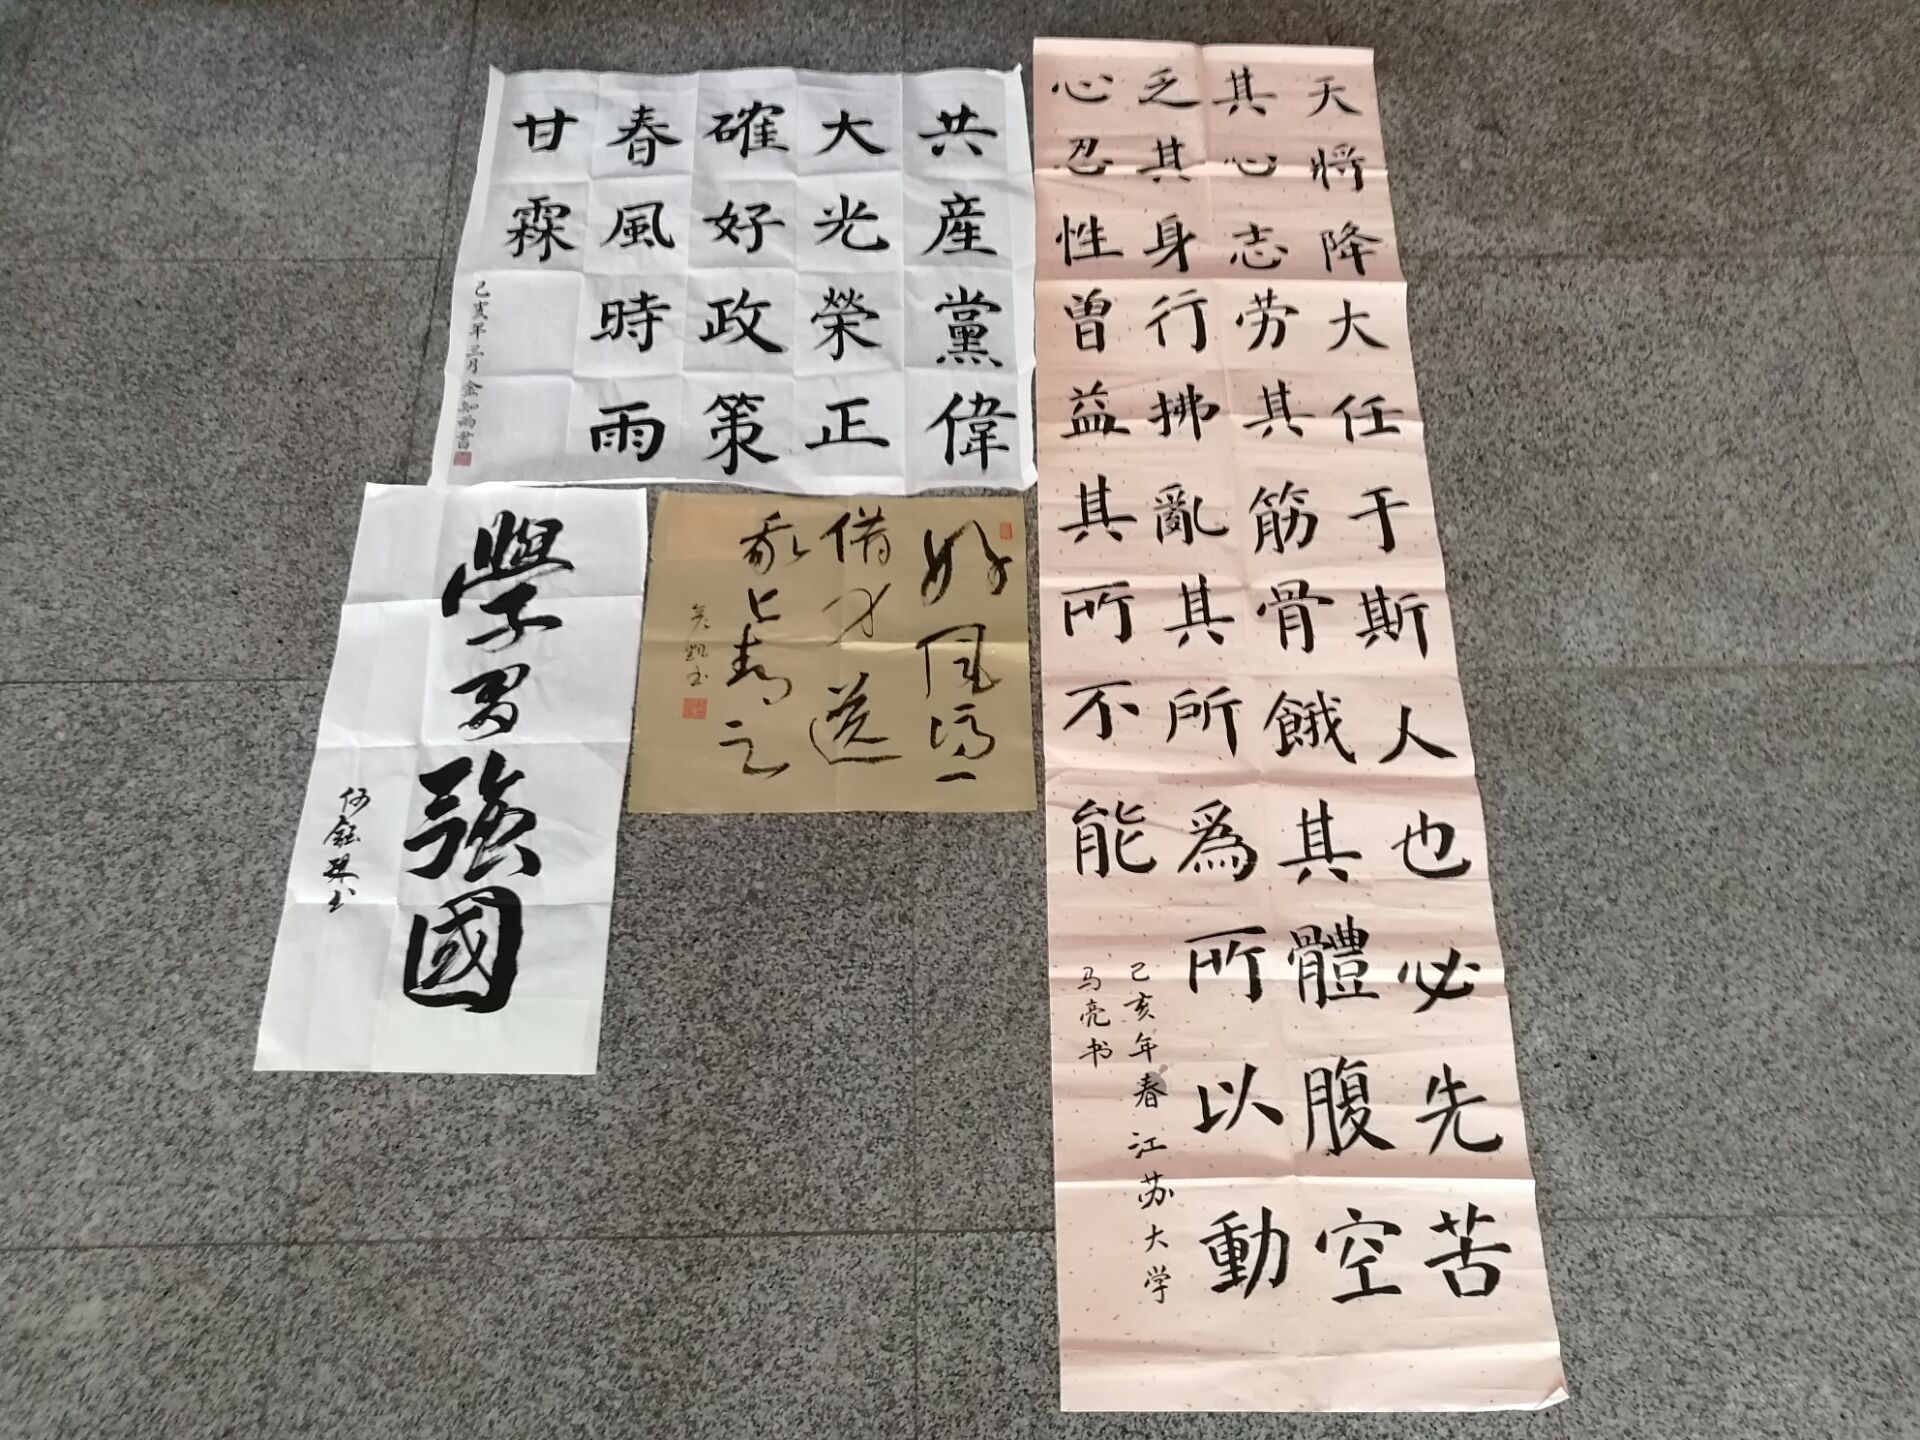 共産黨偉
大光榮正
確好政策
春風時雨
甘霖
己亥年三月 金知雨書
學習強國
好风凭
借力送
我上青云
天将降大任于斯人也必先苦
其心志劳其筋骨餓其體腹空
乏其身行拂亂其所為所以動
心忍性曾益其所不能
己亥年春江苏大学
马亮书